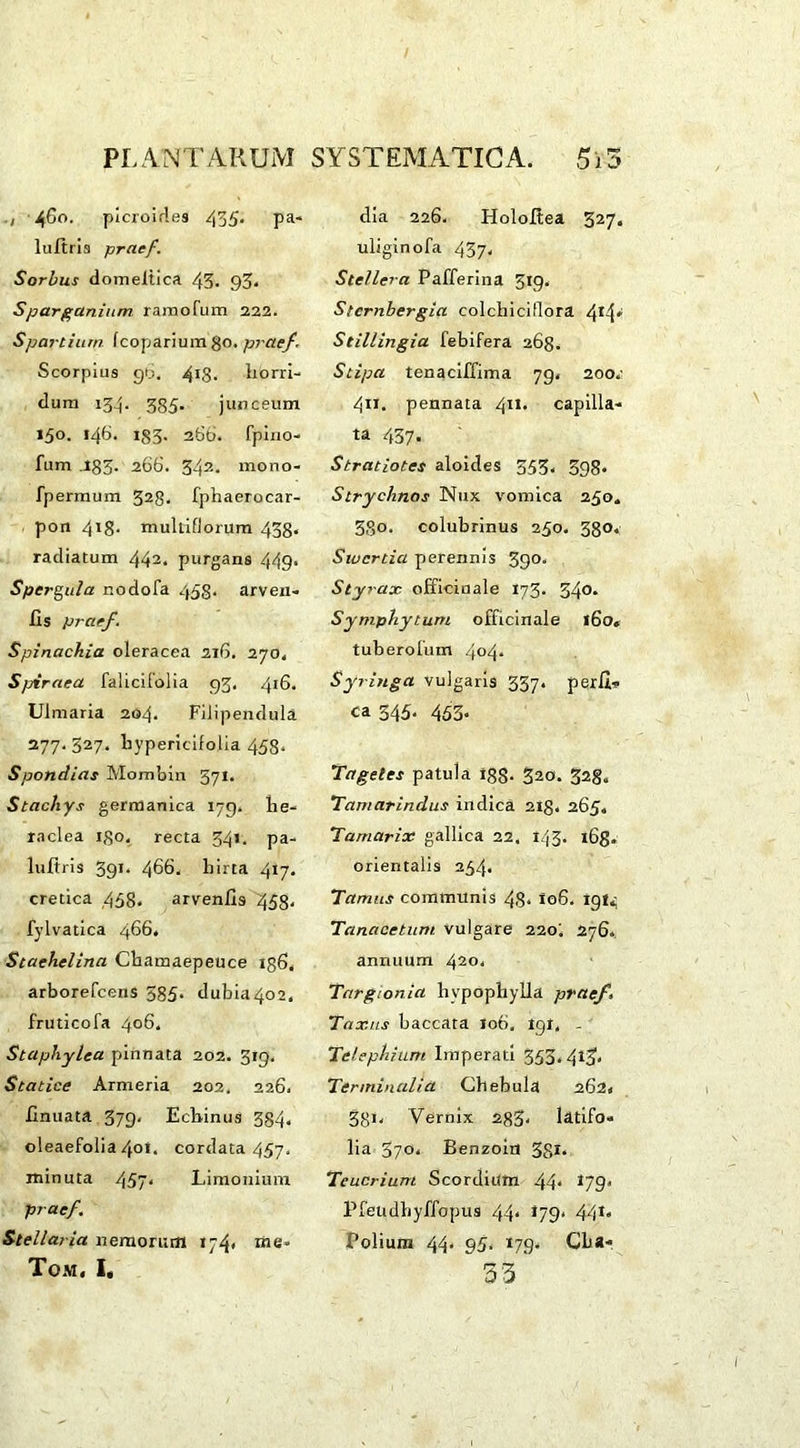 PLANTARUM SYSTEMATICA. 513
, 460. picroides 435. pa-
luſtris praef.
Sorbus domeſtica 43. 93.
Sparganium ramoſum 222.
Spartium ſcoparium 80. praef.
Scorpius 96. 418. horri-
dum 134. 385. junceum
150. 146. 183. 266. ſpino-
ſum 183. 266. 342. mono-
ſpermum 328. ſphaerocar-
pon 418. multiflorum 438.
radiatum 442. purgans 449.
Spergula nodoſa 458. arven-
ſis praef.
Spinachia oleracea 216. 270.
Spiraea ſalicifolia 93. 416.
Ulmaria 204. Filipendula
277. 327. hypericifolia 458.
Spondias Mombin 371.
Stachys germanica 179. he-
raclea 180. recta 341. pa-
luſtris 391. 466. hirta 417.
cretica 458. arvenſis 458.
ſylvatica 466.
Staehelina Chamaepeuce 186.
arboreſcens 385. dubia 402.
fruticoſa 406.
Staphylea pinnata 202. 319.
Statice Armeria 202. 226.
ſinuata 379. Echinus 384.
oleaefolia 401. cordata 457.
minuta 457. Limonium
praef.
Stellaria nemorum 174. me-
TOM. I.
dia 226. Holoſtea 327.
uliginoſa 437.
Stellera Paſſerina 319.
Sternbergia colchiciflora 414.
Stillingia ſebifera 268.
Stipa tenaciſſima 79. 200.
411. pennata 411. capilla-
ta 437.
Stratiotes aloides 353. 398.
Strychnos Nux vomica 250.
380. colubrinus 250. 380.
Swertia perennis 390.
Styrax officinale 173. 340.
Symphytum officinale 160.
tuberoſum 404.
Syringa vulgaris 337. perſi-
ca 345. 453.
Tagetes patula 188. 320. 328.
Tamarindus indica 218. 265.
Tamarix gallica 22. 143. 168.
orientalis 254.
Tamus communis 48. 106. 191.
Tanacetum vulgare 220. 276.
annuum 420.
Targionia hypophylla praef.
Taxus baccata 106. 191.
Telephium Imperati 353. 413.
Terminalia Chebula 262.
381. Vernix 283. latifo-
lia 370. Benzoin 381.
Teucrium Scordium 44. 179.
Pſeudhyſſopus 44. 179. 441.
Polium 44. 95. 179. Cha-
33